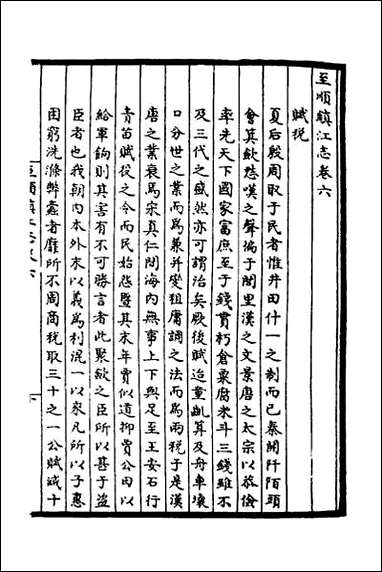 至順鎮江志卷六
賦稅
夏后殷周取于民者惟井田什一之制而已秦開阡陌頭
會箕歛愁嘆之聲徧于閭里漢之文景唐之太宗以恭儉
率先天下國家富庶至于錢貫朽倉粟腐米斗三錢雖不
及三代之盛然亦可謂治矣厥後賦迨童齔算及舟車壞
口分世之業而爲兼并變租庸調之法而爲兩稅于是漢
唐之業衰焉宋真仁閒海內無事上下興足至王安石行
青苗賦役之令而民始愁暨其末年賈似道抑買公田以
給軍餉則其害有不可勝言者此聚歛之臣所以甚于盜
臣者也我朝內本外末以義爲利混一以來凡所以子惠
困窮洗滌弊蠹者靡所不周商稅取三十之一公賦減十